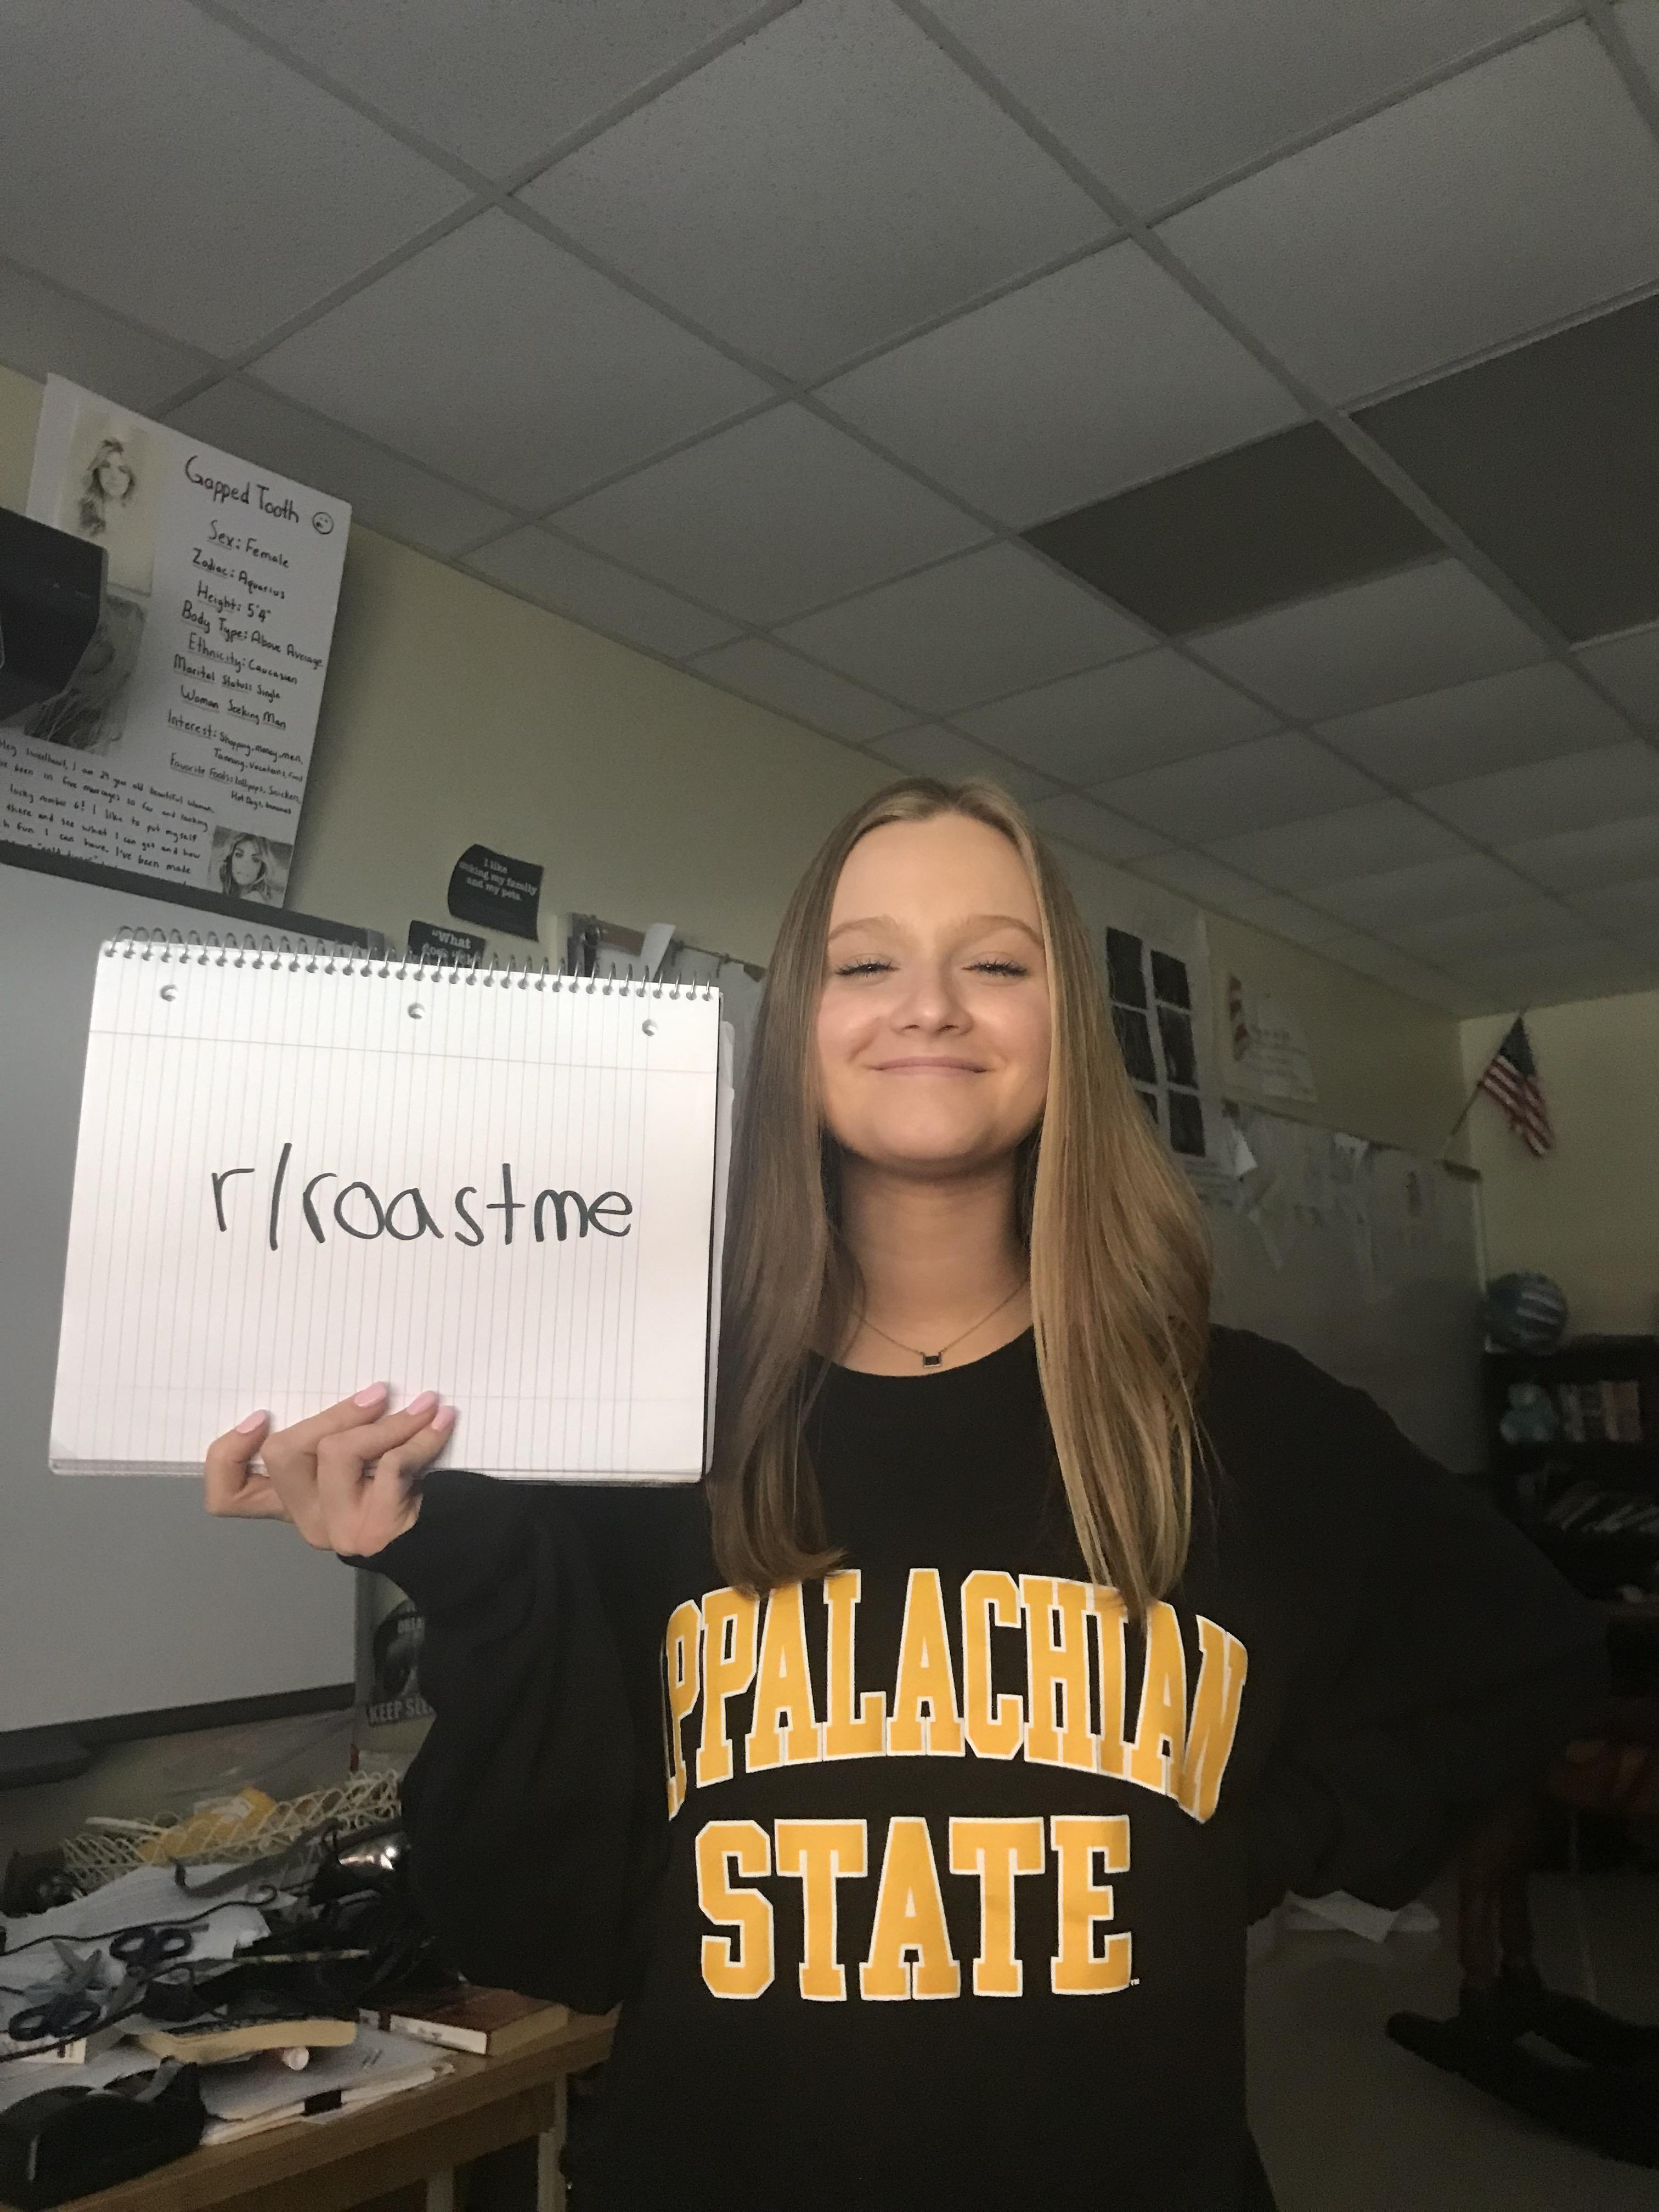 Gapped Tooth
Sex: Female
Zodiac: Aquarius
Height: 5'4"
Body Type: Above Average
Ethnicity: Caucasian
Marital Status: Single
Woman Seeking Man
Interest: Shopping, money, men,
Tanning, Vacations, food
Favorite Foods: lollipops, Snickers,
Hot Dogs, bananas
sweetheart, I am 29 year old beautiful woman.
been in five marriages so far and looking
lucky number 6! I like to put myself
there and see what I can get and how
fun I can have. I've been made
I like
my family
and my pets.
"What
r/roastme
APPALACHIAN
STATE
KEEP